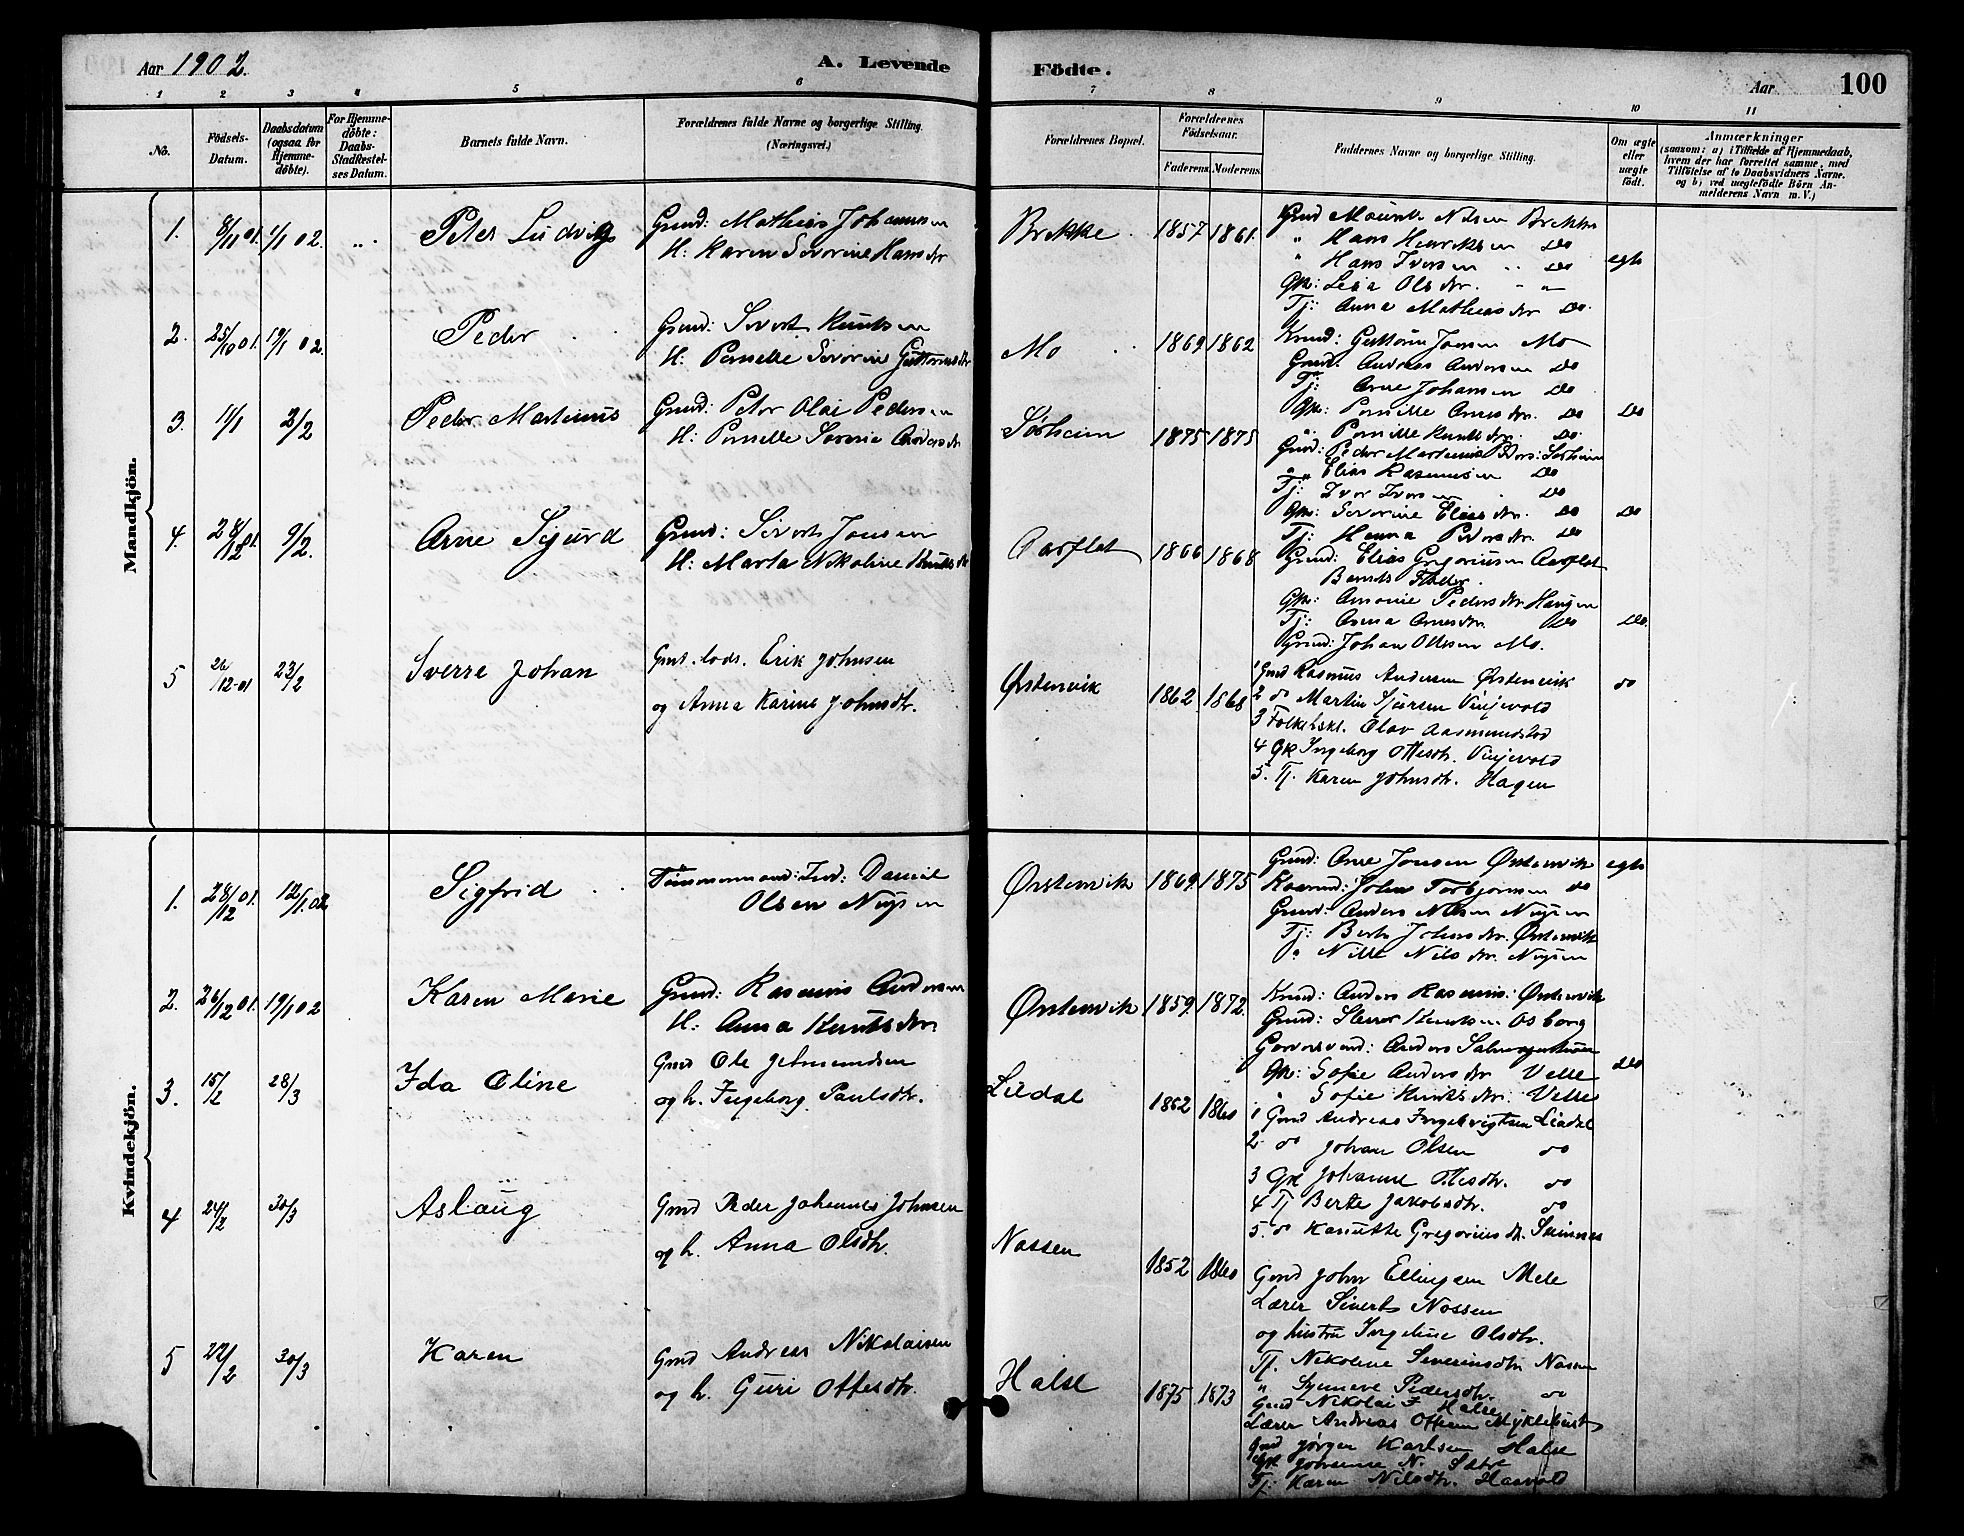 Aar 1902.
A. Levende
Födte.
Aar
100
1 2 3 4 5 6 7 8 9 10 11
No.
Födsels-
Datum.
Daabsdatum
(ogsaa for
Hjemme-
döbte).
For Hjemme-
döbte:
Daabs-
Stadfæstel-
ses Datum.
Barnets fulde Navn.
Forældrenes fulde Navne og borgerlige Stilling.
(Næringsvei.)
Forældrenes Bopæl.
Forældrenes
Födselsaar.
Faderens.
Moderens.
Faddernes Navne og borgerlige Stilling.
Om ægte
eller
uægte
födt.
Anmærkninger
(saasom: a) i Tilfælde af Hjemmedaab,
hvem der har forrettet samme, med
Tilföielse af to Daabsvidners Navne.
og b) ved uægtefödte Börn An-
melderens Navn m. V.)
Mandkjön.
1. 8/11 01. 1/1 02. Peter Ludvig
Gmd: Mathias Johannesen
H: Karen Severine Hansdtr
Brekke 1857 1861.
Nilsen Brekke
" Hans Henriksen do
" Hans Iversen do
egte
Gk: Olsdtr. " "
Tj: Anna Mathiasdtr do.
2. 25/10 01. 19/1 02. Peder
Gmd: Sivert Knutsen
H: Pernille Severine Guttormsdtr
Mo 1869 1862
Guttorm Jonsen Mo
Gmd: Andreas Andersen do
Tj: Arne Johansen do
Gk: Pernille Arnesdtr. do do
" Pernille Knutsdtr. do.
3. 11/1 2/2 Peder Martinus
Gmd: Peter Olai Pedersen
H: Pernille Severine Andersdtr
Sørheim 1875 1875
Gmd: Peder Martinus Peders: Sørheim
" Elias Rasmussen do
Tj: Iver Iversen do
Gk: Severine Eliasdtr. do do
Tj: Hanna Pedersdtr. do
4. 28/12 01. 9/2. Arne Sigurd
Gmd: Sivert Jonsen
H: Marta Nikoline Knutsdtr
Aarflot 1866 1868
Gmd: Elias Gregoriusen Aarflot
Barnets Fader.
Gk: Pedersdtr. Haugen
Tj: Anna Arnesdtr. do do.
Gmd: Johan Ottesen Mo.
5 26/12-01 23/2 Sverre Johan
Gmd. Lods. Erik Johnsen
og Anna Karine Johnsdtr.
Ørstenvik 1862 1868
1 Gmd Rasmus Andersen Ørstenvik do
2 do Martin Sjursen Vinjevold
3 Olav Aasmundstad
4 Gk Ingeborg Ottesdtr. Vinjevold
5. Tj. Karen Johnsdtr. Hagen
Kvindekjön.
1. 28/12 01. 12/1. 02 Sigfrid
Tømmermand: Ind: Daniel
Olsen
Ørstenvik 1869. 1875
Gmd: Arne Jonsen Ørstenvik egte
John Torbjørnsen do
Gmd: Anders Nilsen
Tj: Berte Johnsdtr. Ørstenvik
" Nille Nilsdtr.
2. 26/12 01. 19/1 02 Karen Marie
Gmd: Rasmus Andersen
H: Anna Knutsdtr.
Ørstenvik 1859. 1872.
Anders Rasmus: Ørstenvik
Gmd: Knutsen Osborg
Anders
Gk: Sofie Andersdtr Velle do
" Sofie Knutsdtr. Velle
3. 15/2 28/3 Ida Oline
Gmd Ole Jetmundsen
og h. Ingeborg Paulsdtr.
Liadal 1862 1860
1 Gmd Andreas Ingebrigtsen Liadal
2 do Johan Olsen do
3 Gk Johanne Ottesdtr. do
4 Tj Berte Jakobsdtr. do
5. do Kanutte Gregoriusdtr.
4 24/2 30/3 Aslaug
Gmd Peder Johannes Johnsen
og h. Anna Olsdtr.
Nossen 1852 1860
Gmd John Ellingsen Mele
Lærer Sivert Nossen
og hustru Ingeline Olsdtr.
Tj. Nikoline Severinsdtr Nossen
" Synneve Pedersdtr. do
5 22/2 30/3 Karen
Gmd Andreas Nikolaisen
og h. Guri Ottesdtr.
Halse 1875 1873
Gmd Nikolai J Halse
Lærer Andreas Ottesen Myklebust
Gmd Jørgen Karlsen Halse
Gk Johanne N. Sætre
Tj. Karen Nilsdtr. Haavold